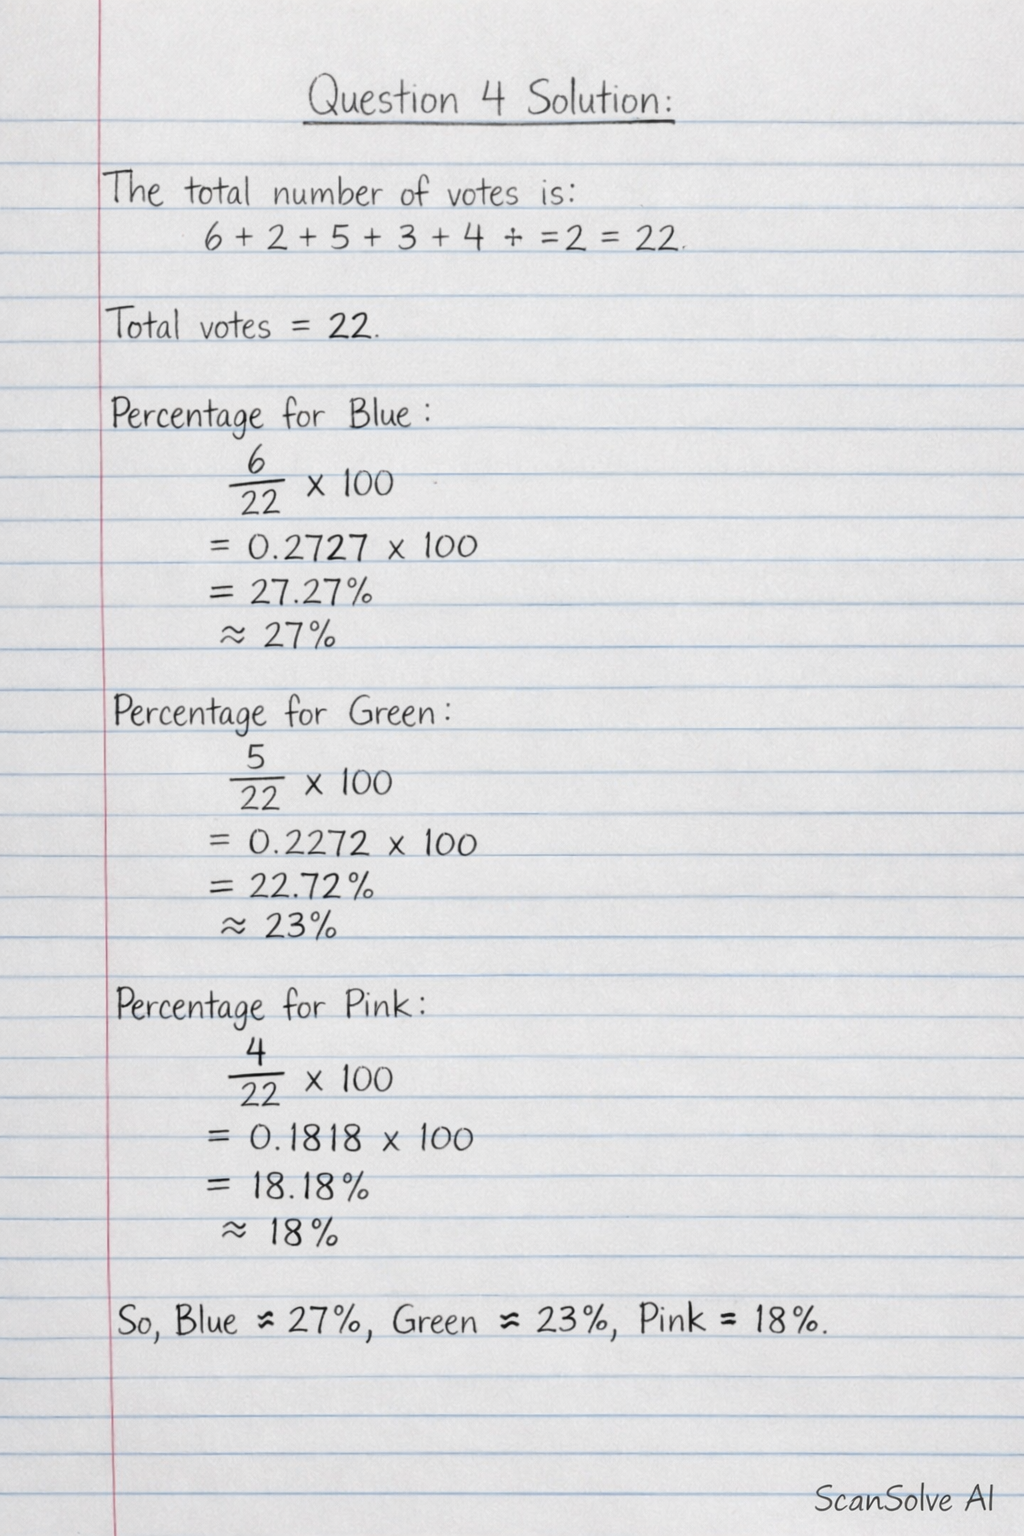 Question 4 Solution:
The total number of votes is:
6 + 2 + 5 + 3 + 4 ÷ = 2 = 22.
Total votes = 22.
Percentage for Blue :
6/22 x 100
= 0.2727 x 100
= 27.27%
≈ 27%
Percentage for Green :
5/22 x 100
= 0.2272 x 100
= 22.72%
≈ 23%
Percentage for Pink :
4/22 x 100
= 0.1818 x 100
= 18.18%
≈ 18%
So, Blue ≈ 27%, Green ≈ 23%, Pink = 18%.
ScanSolve AI